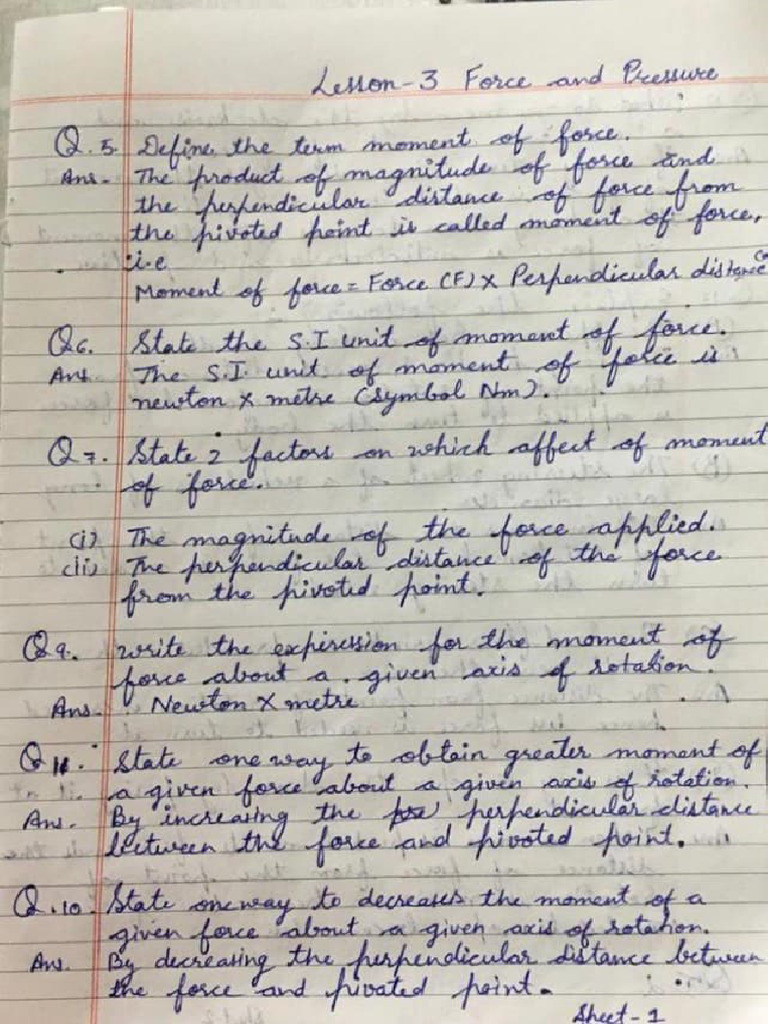 Lesson-3 Force and Pressure
Q.5. Define the term moment of force.
Ans- The product of magnitude of force and
the perpendicular distance of force from
the pivoted point is called moment of force,
i.e
Moment of force = Force (F) x Perpendicular distance
Q6. State the S.I unit of moment of force.
Ans The S.I. unit of moment of force is
newton x metre (symbol Nm).
Q7. State 2 factors on which affect of moment
of force.
(i) The magnitude of the force applied.
(ii) The perpendicular distance of the force
from the pivoted point.
Q9. write the expiression for the moment of
force about a given axis of rotation.
Ans. Newton X metre
Q11. State one way to obtain greater moment of
a given force about a given axis of rotation.
Ans. By increasing the perpendicular distance
between the force and pivoted point.
Q.10. State one way to decreases the moment of a
given force about a given axis of rotation.
Ans. By decreasing the perpendicular distance between
the force and pivated point.
Sheet-1